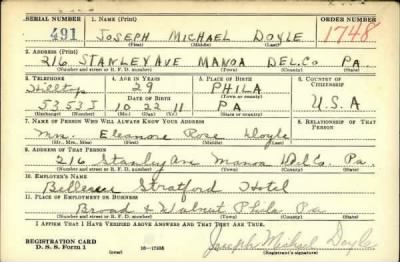 SERIAL NUMBER 1. NAME (Print) ORDER NUMBER
491 JOSEPH MICHAEL DOYLE 1748
(First) (Middle) (Last)
2. ADDRESS (Print)
216 STANLEY AVE MANOA DEL.CO. PA.
(Number and street or R. F. D. number) (Town) (County) (State)
3. TELEPHONE 4. AGE IN YEARS 5. PLACE OF BIRTH 6. COUNTRY OF CITIZENSHIP
Hilltop 29 PHILA
(Town or county)
DATE OF BIRTH
5353J 10 22 11 PA U.S.A
(Exchange) (Number) (Mo.) (Day) (Yr.) (State or country)
7. NAME OF PERSON WHO WILL ALWAYS KNOW YOUR ADDRESS 8. RELATIONSHIP OF THAT PERSON
Mrs. Eleanore Rose Doyle
(Mr., Mrs., Miss) (First) (Middle) (Last)
9. ADDRESS OF THAT PERSON
216 Stanley Ave Manoa Del Co. Pa.
(Number and street or R. F. D. number) (Town) (County) (State)
10. EMPLOYER'S NAME
Bellevue Stratford Hotel
11. PLACE OF EMPLOYMENT OR BUSINESS
Broad & Walnut Phila Pa
(Number and street or R. F. D. number) (Town) (County) (State)
I AFFIRM THAT I HAVE VERIFIED ABOVE ANSWERS AND THAT THEY ARE TRUE.
REGISTRATION CARD
D. S. S. Form 1 (over) Joseph Michael Doyle
(Registrant's signature)